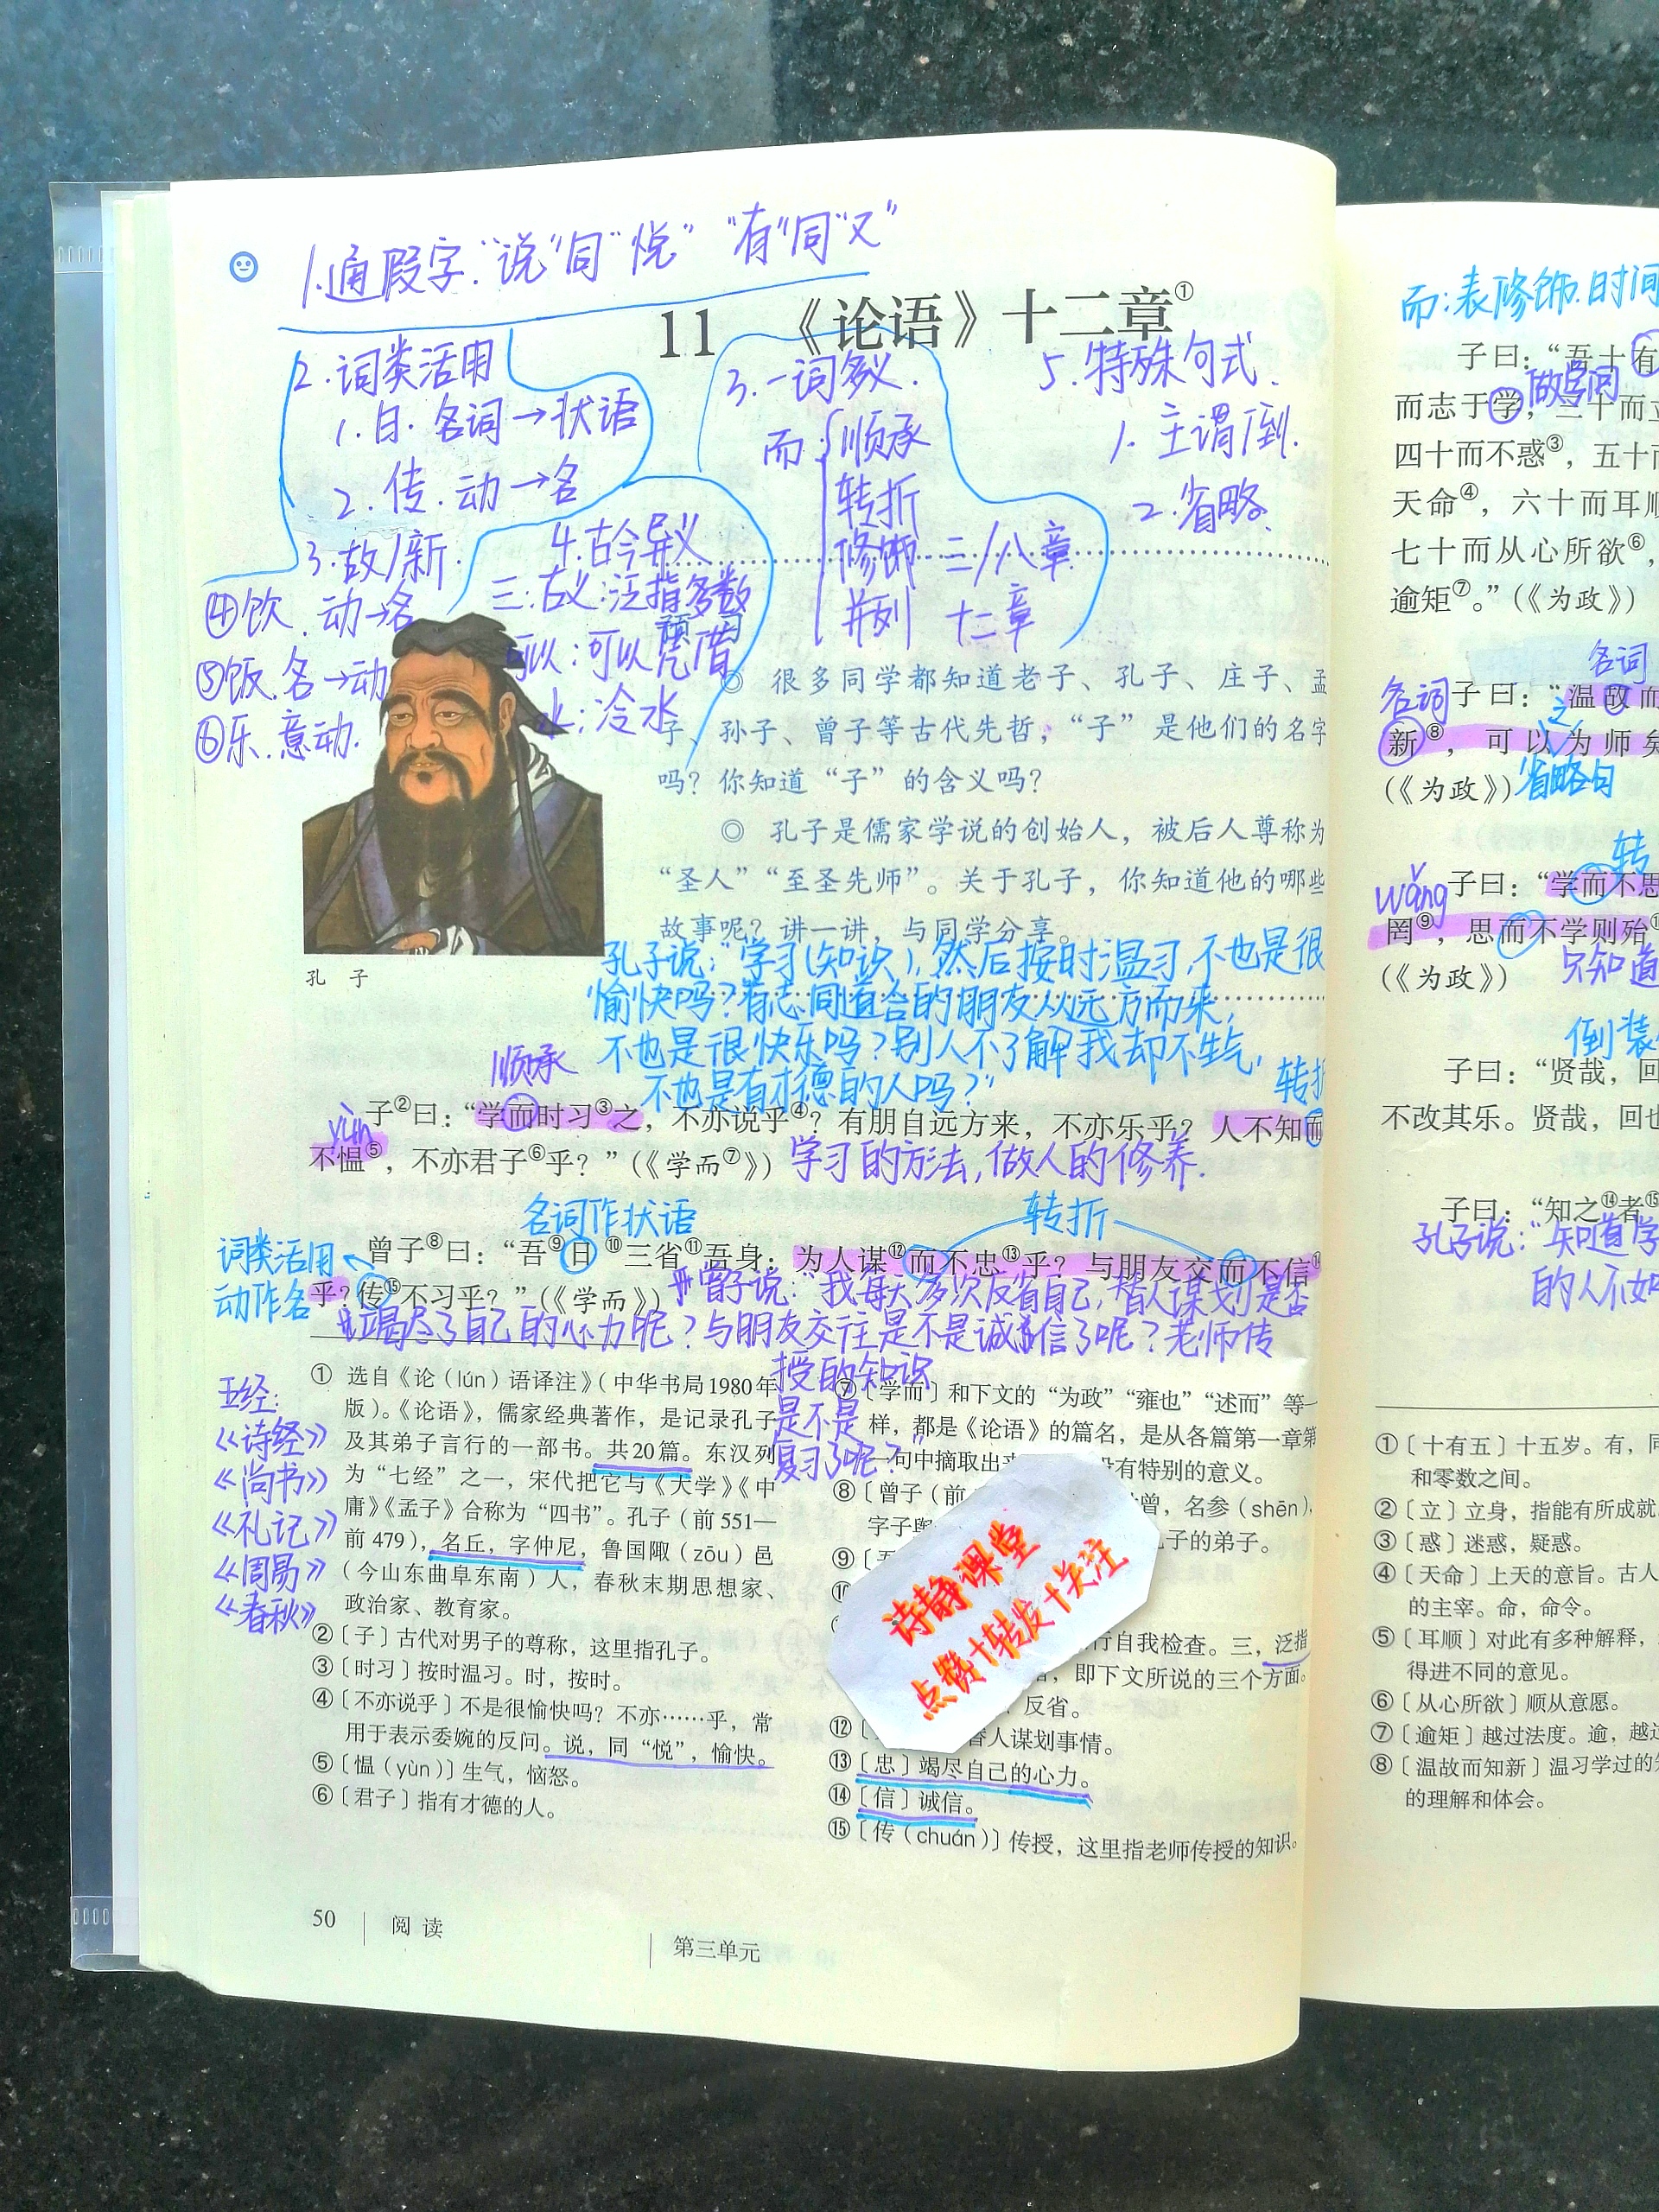 1.通假字."说"同"悦" "有"同"又"
11 《论语》十二章①
2.词类活用
1.日.名词→状语
2.传.动→名
3.故/新.
④饮.动→名
⑤饭.名→动
⑥乐.意动.
3.一词多义.
而:顺承
转折
修饰 三/八章
并列 十二章
4.古今异义
三:古义:泛指多数
可以:可以凭借
水:冷水
5.特殊句式.
1.主谓倒.
2.省略.
◎ 很多同学都知道老子、孔子、庄子、孟
子、孙子、曾子等古代先哲,“子”是他们的名字
吗?你知道“子”的含义吗?
◎ 孔子是儒家学说的创始人,被后人尊称为
“圣人”“至圣先师”。关于孔子,你知道他的哪些
故事呢?讲一讲,与同学分享。
孔 子
孔子说:“学习(知识),然后按时温习,不也是很
愉快吗?有志同道合的朋友从远方而来,
不也是很快乐吗?别人不了解我却不生气,
不也是有才德的人吗?”
顺承
转折
yùn
子②曰:“学而时习③之,不亦说乎④?有朋自远方来,不亦乐乎?人不知而
不愠⑤,不亦君子⑥乎?”(《学而⑦》)
学习的方法,做人的修养.
名词作状语
转折
词类活用
动作名
曾子⑧曰:“吾⑨日⑩三省⑪吾身:为人谋⑫而不忠⑬乎?与朋友交而不信⑭
乎?传⑮不习乎?”(《学而》)
曾子说:“我每天多次反省自己,替人谋划是否
竭尽了自己的心力呢?与朋友交往是不是诚信了呢?老师传
授的知识
是不是
复习了呢?”
五经:
《诗经》
《尚书》
《礼记》
《周易》
《春秋》
① 选自《论(lún)语译注》(中华书局1980年
版)。《论语》,儒家经典著作,是记录孔子
及其弟子言行的一部书。共20篇。东汉列
为“七经”之一,宋代把它与《大学》《中
庸》《孟子》合称为“四书”。孔子(前551—
前479),名丘,字仲尼,鲁国陬(zōu)邑
(今山东曲阜东南)人,春秋末期思想家、
政治家、教育家。
②〔子〕古代对男子的尊称,这里指孔子。
③〔时习〕按时温习。时,按时。
④〔不亦说乎〕不是很愉快吗?不亦……乎,常
用于表示委婉的反问。说,同“悦”,愉快。
⑤〔愠(yùn)〕生气,恼怒。
⑥〔君子〕指有才德的人。
⑦〔学而〕和下文的“为政”“雍也”“述而”等一
样,都是《论语》的篇名,是从各篇第一章第
一句中摘取出来 没有特别的意义。
⑧〔曾子(前 曾,名参(shēn),
字子舆 孔子的弟子。
⑨
⑩
行自我检查。三,泛指
即下文所说的三个方面。
反省。
⑫ 替人谋划事情。
⑬〔忠〕竭尽自己的心力。
⑭〔信〕诚信。
⑮〔传(chuán)〕传授,这里指老师传授的知识。
诗静课堂
点赞+转发+关注
50 阅读
第三单元
而:表修饰.时间
子曰:“吾十有
做学问
而志于学,三十而立
四十而不惑③,五十而
天命④,六十而耳顺
七十而从心所欲⑥,
逾矩⑦。”(《为政》)
名词
名词
子曰:“温故而
新⑧,可以为师矣
之
(《为政》)
省略句
转
wǎng
子曰:“学而不思
罔⑨,思而不学则殆
(《为政》)
只知道
倒装
子曰:“贤哉,回
不改其乐。贤哉,回也
子曰:“知之⑭者⑮
孔子说:“知道学
的人不如
①〔十有五〕十五岁。有,同
和零数之间。
②〔立〕立身,指能有所成就
③〔惑〕迷惑,疑惑。
④〔天命〕上天的意旨。古人
的主宰。命,命令。
⑤〔耳顺〕对此有多种解释,
得进不同的意见。
⑥〔从心所欲〕顺从意愿。
⑦〔逾矩〕越过法度。逾,越过
⑧〔温故而知新〕温习学过的知
的理解和体会。